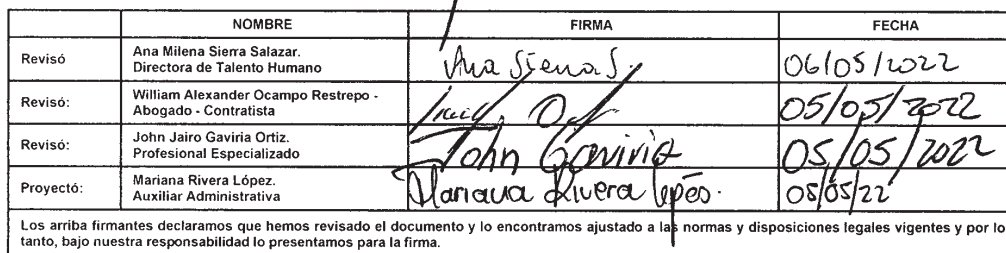 NOMBRE FIRMA FECHA
Revisó Ana Milena Sierra Salazar. Directora de Talento Humano Ana Sierra S. 06/05/2022
Revisó: William Alexander Ocampo Restrepo - Abogado - Contratista 05/05/2022
Revisó: John Jairo Gaviria Ortiz. Profesional Especializado John Gaviria 05/05/2022
Proyectó: Mariana Rivera López. Auxiliar Administrativa Mariana Rivera lopés. 05/05/22
Los arriba firmantes declaramos que hemos revisado el documento y lo encontramos ajustado a las normas y disposiciones legales vigentes y por lo
tanto, bajo nuestra responsabilidad lo presentamos para la firma.